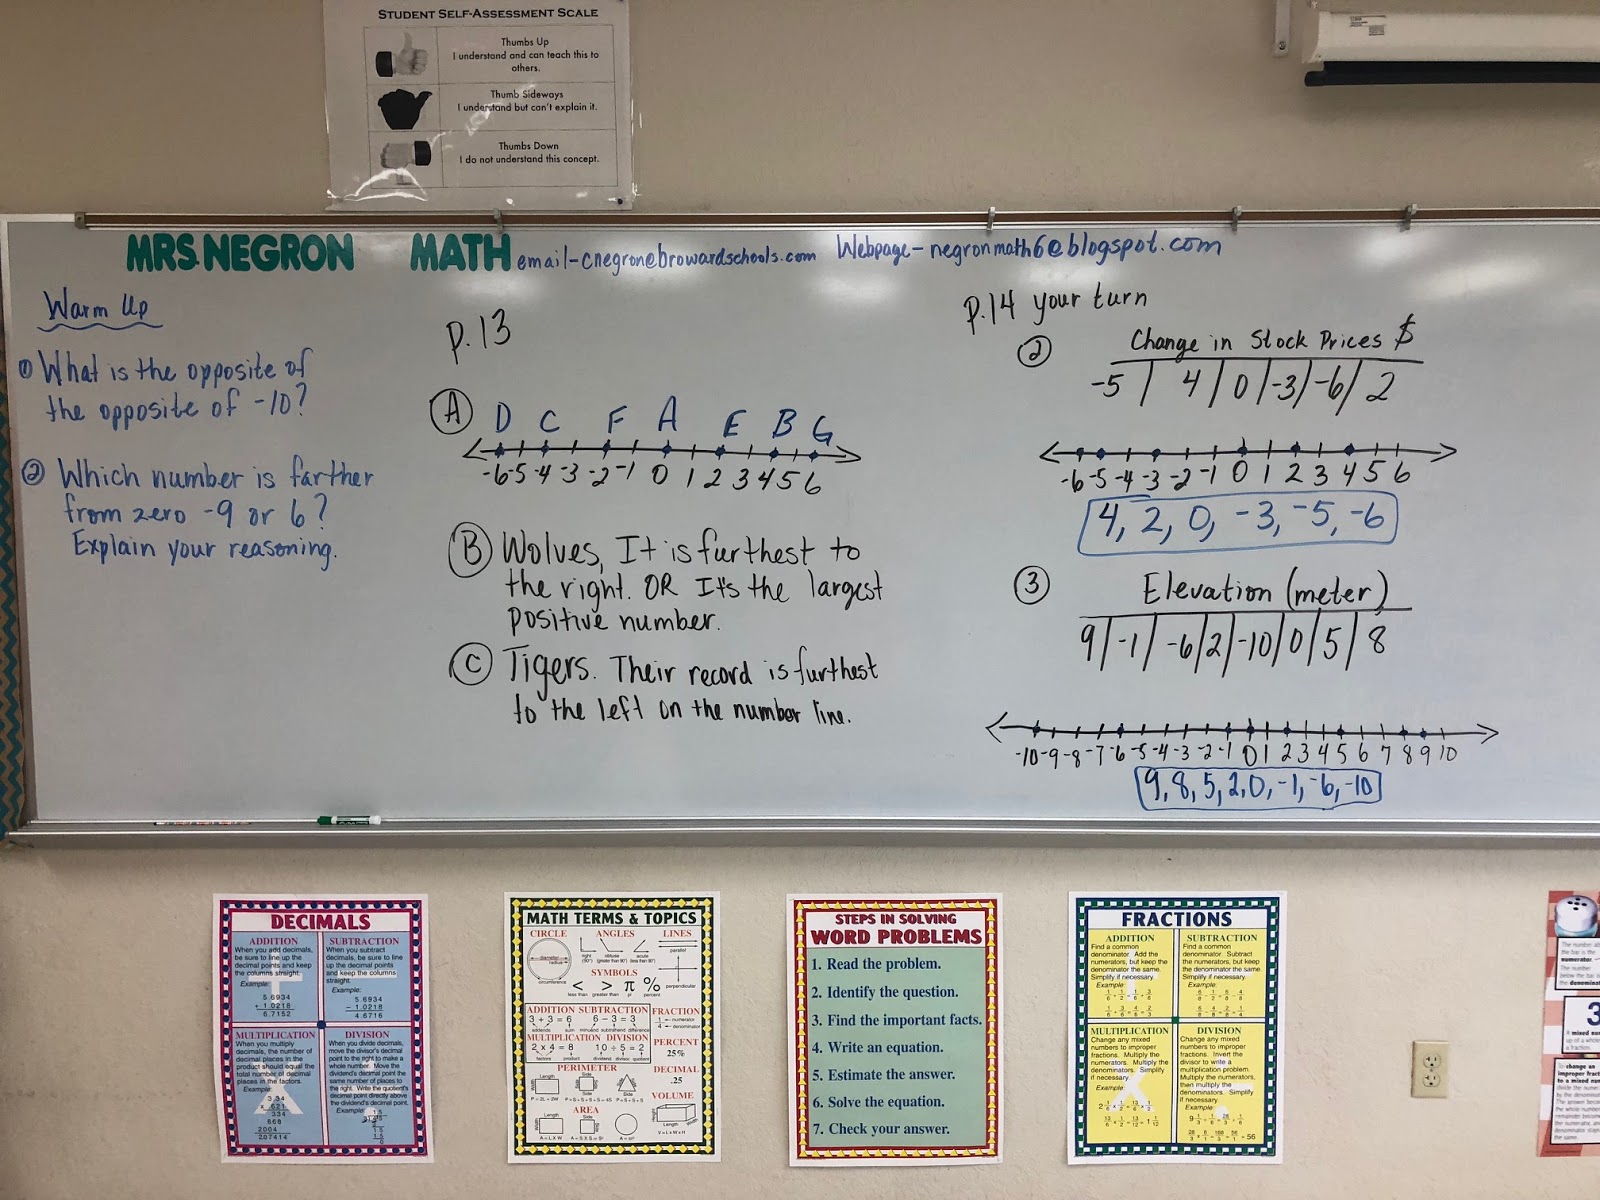 STUDENT SELF-ASSESSMENT SCALE
Thumbs Up
I understand and can teach this to
others.
Thumb Sideways
I understand but can't explain it.
Thumbs Down
I do not understand this concept.
MRS. NEGRON MATH email-cnegron@browardschools.com Webpage-negronmath6@blogspot.com
Warm Up
① What is the opposite of
the opposite of -10?
② Which number is farther
from zero -9 or 6?
Explain your reasoning.
P.13
Ⓐ D C F A E B G
-6 -5 -4 -3 -2 -1 0 1 2 3 4 5 6
Ⓑ Wolves, It is furthest to
the right. OR It's the largest
positive number.
Ⓒ Tigers. Their record is furthest
to the left on the number line.
P.14 your turn
② Change in Stock Prices $
-5 | 4 | 0 | -3 | -6 | 2
-6 -5 -4 -3 -2 -1 0 1 2 3 4 5 6
4, 2, 0, -3, -5, -6
③ Elevation (meter)
9 | -1 | -6 | 2 | -10 | 0 | 5 | 8
-10 -9 -8 -7 -6 -5 -4 -3 -2 -1 0 1 2 3 4 5 6 7 8 9 10
9, 8, 5, 2, 0, -1, -6, -10
DECIMALS
ADDITION
When you add decimals,
be sure to line up the
decimal points and keep
the columns straight.
Example:
5.6934
+ 1.0218
6.7152
SUBTRACTION
When you subtract
decimals, be sure to line
up the decimal points
and keep the columns
straight.
Example:
5.6934
- 1.0218
4.6716
MULTIPLICATION
When you multiply
decimals, the number of
decimal places in the
product should equal the
total number of decimal
places in the factors.
Example:
DIVISION
When you divide decimals,
move the divisor's decimal
point to the right to make a
whole number. Move the
dividend's decimal point the
same number of places to
the right. Write the quotient's
decimal point directly above
the dividend's decimal point.
Example:
MATH TERMS & TOPICS
CIRCLE ANGLES LINES
diameter
radius
circumference
right
obtuse
acute
parallel
perpendicular
SYMBOLS
< > π %
less than greater than pi percent
ADDITION SUBTRACTION FRACTION
3 + 3 = 6 6 − 3 = 3
MULTIPLICATION DIVISION
2 x 4 = 8 10 ÷ 5 = 2
PERCENT
25%
PERIMETER
DECIMAL
.25
AREA
VOLUME
STEPS IN SOLVING
WORD PROBLEMS
1. Read the problem.
2. Identify the question.
3. Find the important facts.
4. Write an equation.
5. Estimate the answer.
6. Solve the equation.
7. Check your answer.
FRACTIONS
ADDITION
Find a common
denominator. Add the
numerators, but keep the
denominator the same.
Simplify if necessary.
Example:
SUBTRACTION
Find a common
denominator. Subtract
the numerators, but keep
the denominator the same.
Simplify if necessary.
Example:
MULTIPLICATION
Change any mixed
numbers to improper
fractions. Multiply the
numerators. Multiply the
denominators. Simplify
if necessary.
Example:
DIVISION
Change any mixed
numbers to improper
fractions. Invert the
divisor to write a
multiplication problem.
Multiply the numerators,
then multiply the
denominators. Simplify
if necessary.
Example: